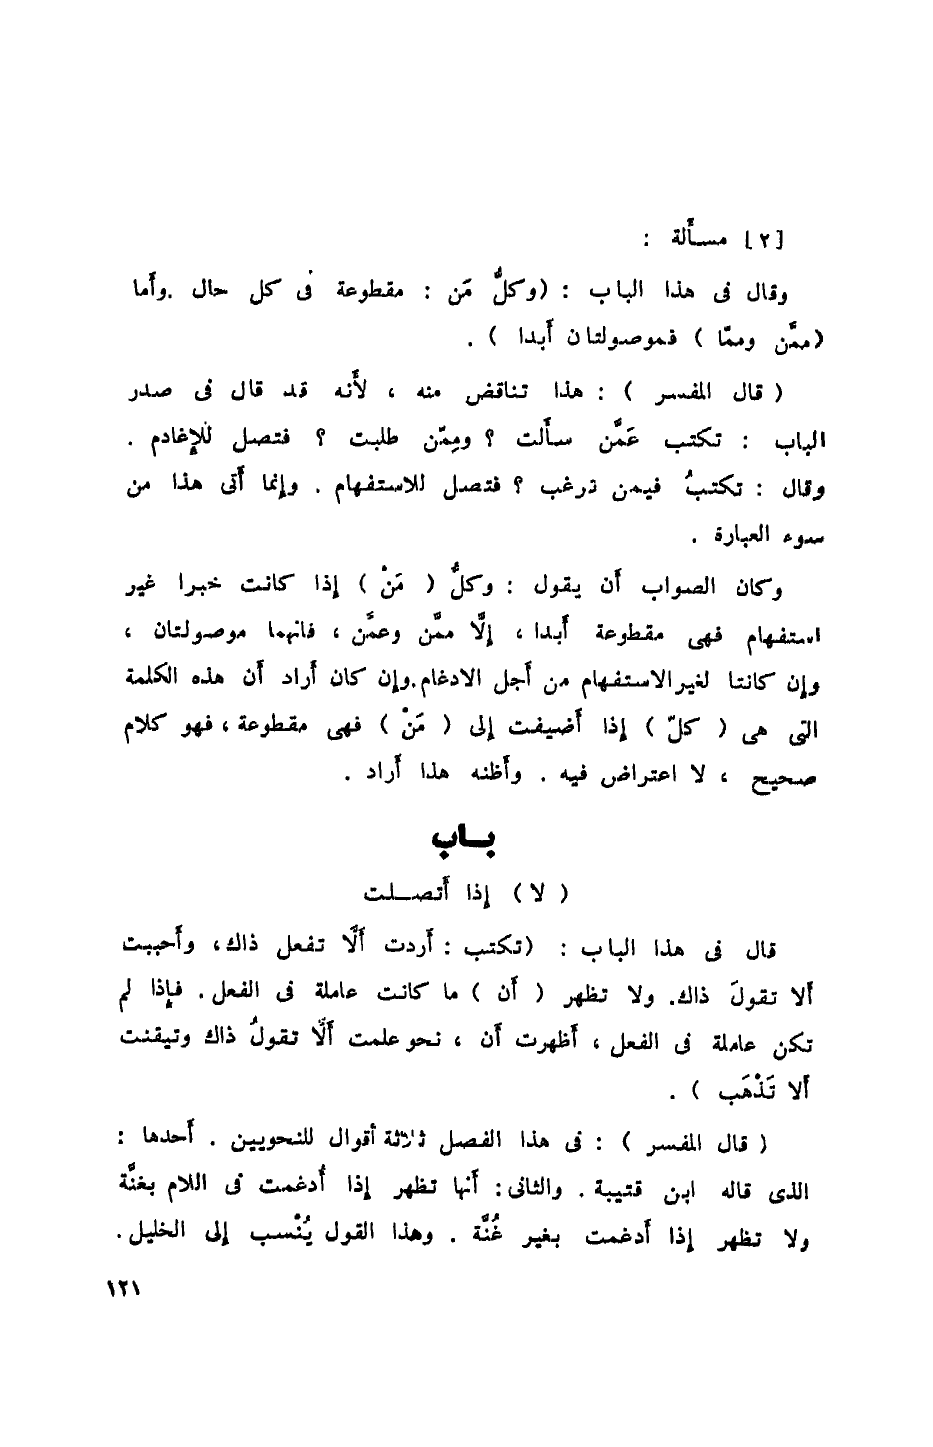 [٢] مسـألة :
وقال فى هذا الباب : (وكلُّ مَن : مقطوعة فى كل حال .وأما
(ممَّن وممّا ) فموصولتان أبدا ) .
( قال المفسر ) : هذا تناقض منه ، لأنه قد قال فى صدر
الباب : تكتب عَمَّن سألت ؟ ومِمّن طلبت ؟ فتصل للإغادم .
وقال : تكتبُ فيمن ترغب ؟ فتصل للاستفهام . وإنما أتى هذا من
سوء العبارة .
وكان الصواب أن يقول : وكلُّ ( مَنْ ) إذا كانت خبرا غير
استفهام فهى مقطوعة أبدا ، إلَّا ممَّن وعمَّن ، فانهما موصولتان ،
وإن كانتا لغير الاستفهام من أجل الادغام.وإن كان أراد أن هذه الكلمة
التى هى ( كلّ ) إذا أضيفت إلى ( مَنْ ) فهى مقطوعة ، فهو كلام
صحيح ، لا اعتراض فيه . وأظنه هذا أراد .
بـاب
( لا ) إذا أتصـلت
قال فى هذا الباب : (تكتب : أردت ألَّا تفعل ذاك ، وأحببت
ألا تقولَ ذاك. ولا تظهر ( أن ) ما كانت عاملة فى الفعل . فإذا لم
تكن عاملة فى الفعل ، أظهرت أن ، نحو علمت ألَّا تقولُ ذاك وتيقنت
ألا تَذْهَب ) .
( قال المفسر ) : فى هذا الفصل ثلاثة أقوال للنحويين . أحدها :
الذى قاله ابن قتيبة . والثانى : أنها تظهر إذا أُدغمت فى اللام بغنَّة
ولا تظهر إذا أدغمت بغير غُنَّة . وهذا القول يُنْسب إلى الخليل .
١٢١